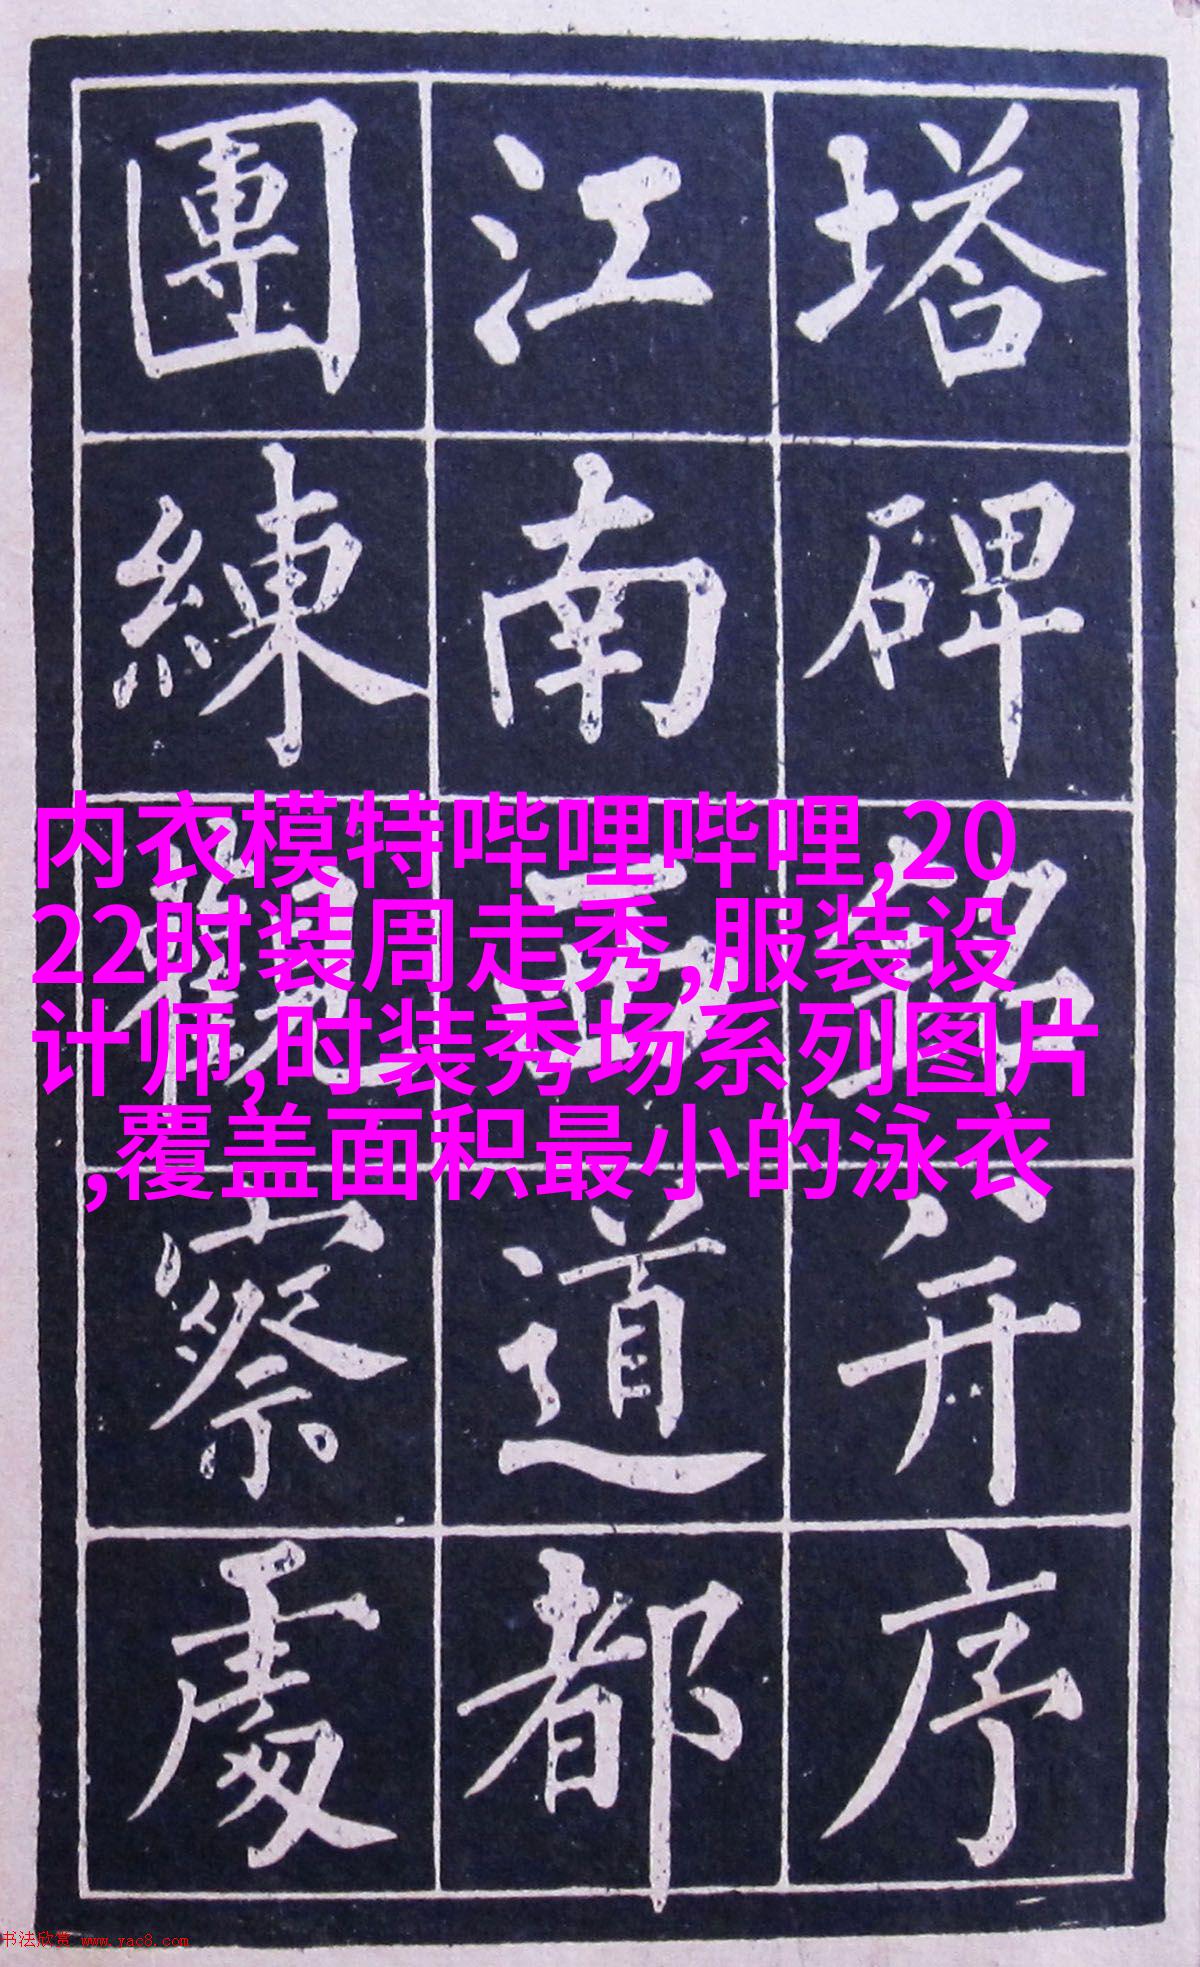 塔碑銘并序
江南西道都
團練觀察處
内衣模特哔哩哔哩,20
22时装周走秀,服装设
计师,时装秀场系列图片
,覆盖面积最小的泳衣
书法欣赏 www.yac8.com